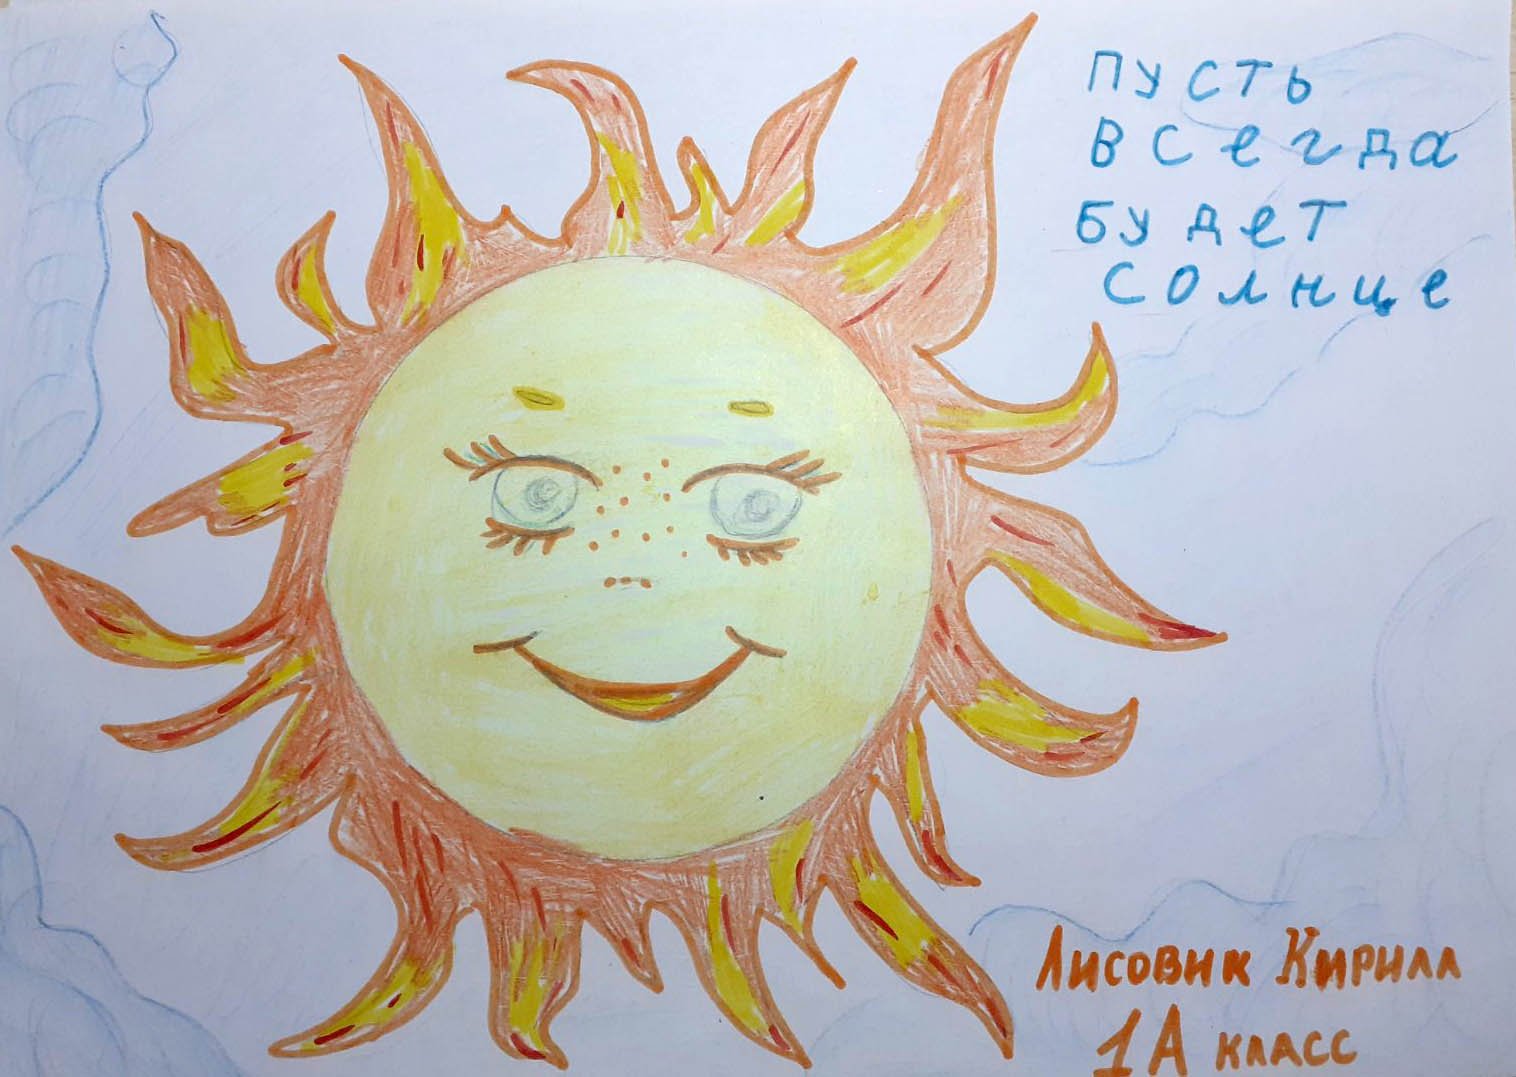 ПУСТЬ
ВСегдa
БУдеТ
СОлнце
Лисовик Кирилл
1А класс